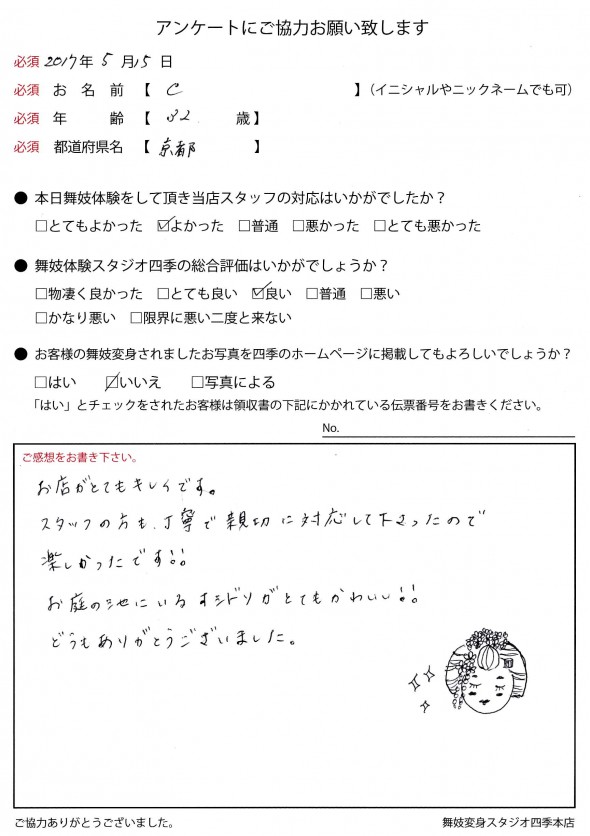 アンケートにご協力お願い致します
必須 2017年 5 月 15 日
必須 お 名 前 【 C 】（イニシャルやニックネームでも可）
必須 年 齢 【 32 歳】
必須 都道府県名 【 京都 】
● 本日舞妓体験をして頂き当店スタッフの対応はいかがでしたか？
□とてもよかった ☑よかった □普通 □悪かった □とても悪かった
● 舞妓体験スタジオ四季の総合評価はいかがでしょうか？
□物凄く良かった □とても良い ☑良い □普通 □悪い
□かなり悪い □限界に悪い二度と来ない
● お客様の舞妓変身されましたお写真を四季のホームページに掲載してもよろしいでしょうか？
□はい ☑いいえ □写真による
「はい」とチェックをされたお客様は領収書の下記にかかれている伝票番号をお書きください。
No.
ご感想をお書き下さい。
お店がとてもキレイです。
スタッフの方も、丁寧で親切に対応して下さったので
楽しかったです!!
お庭の池にいるオシドリがとてもかわいい!!
どうもありがとうございました。
ご協力ありがとうございました。
舞妓変身スタジオ四季本店